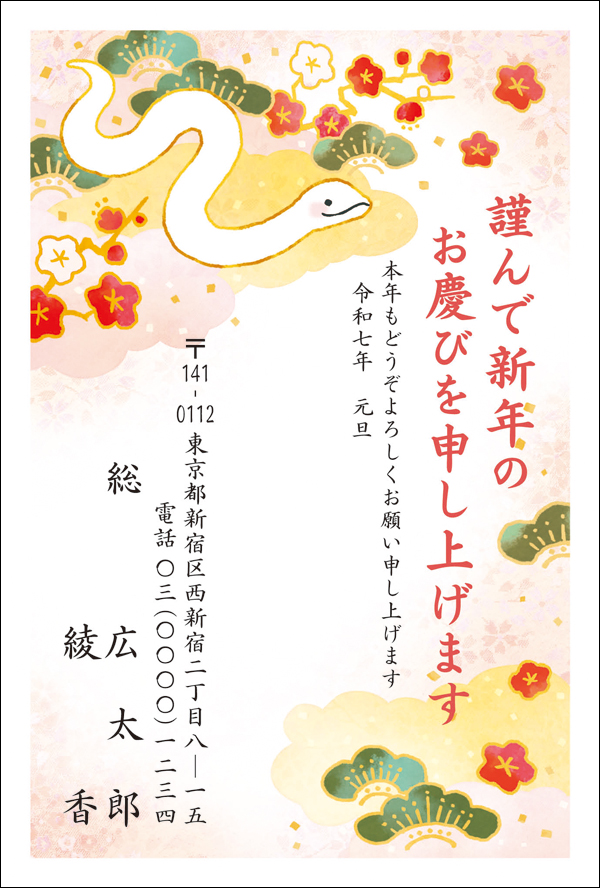 謹んで新年の
お慶びを申し上げます
本年もどうぞよろしくお願い申し上げます
令和七年 元旦
〒141-0112 東京都新宿区西新宿二丁目八―一五
電話 〇三(〇〇〇〇)一二三四
総 広太郎
綾香